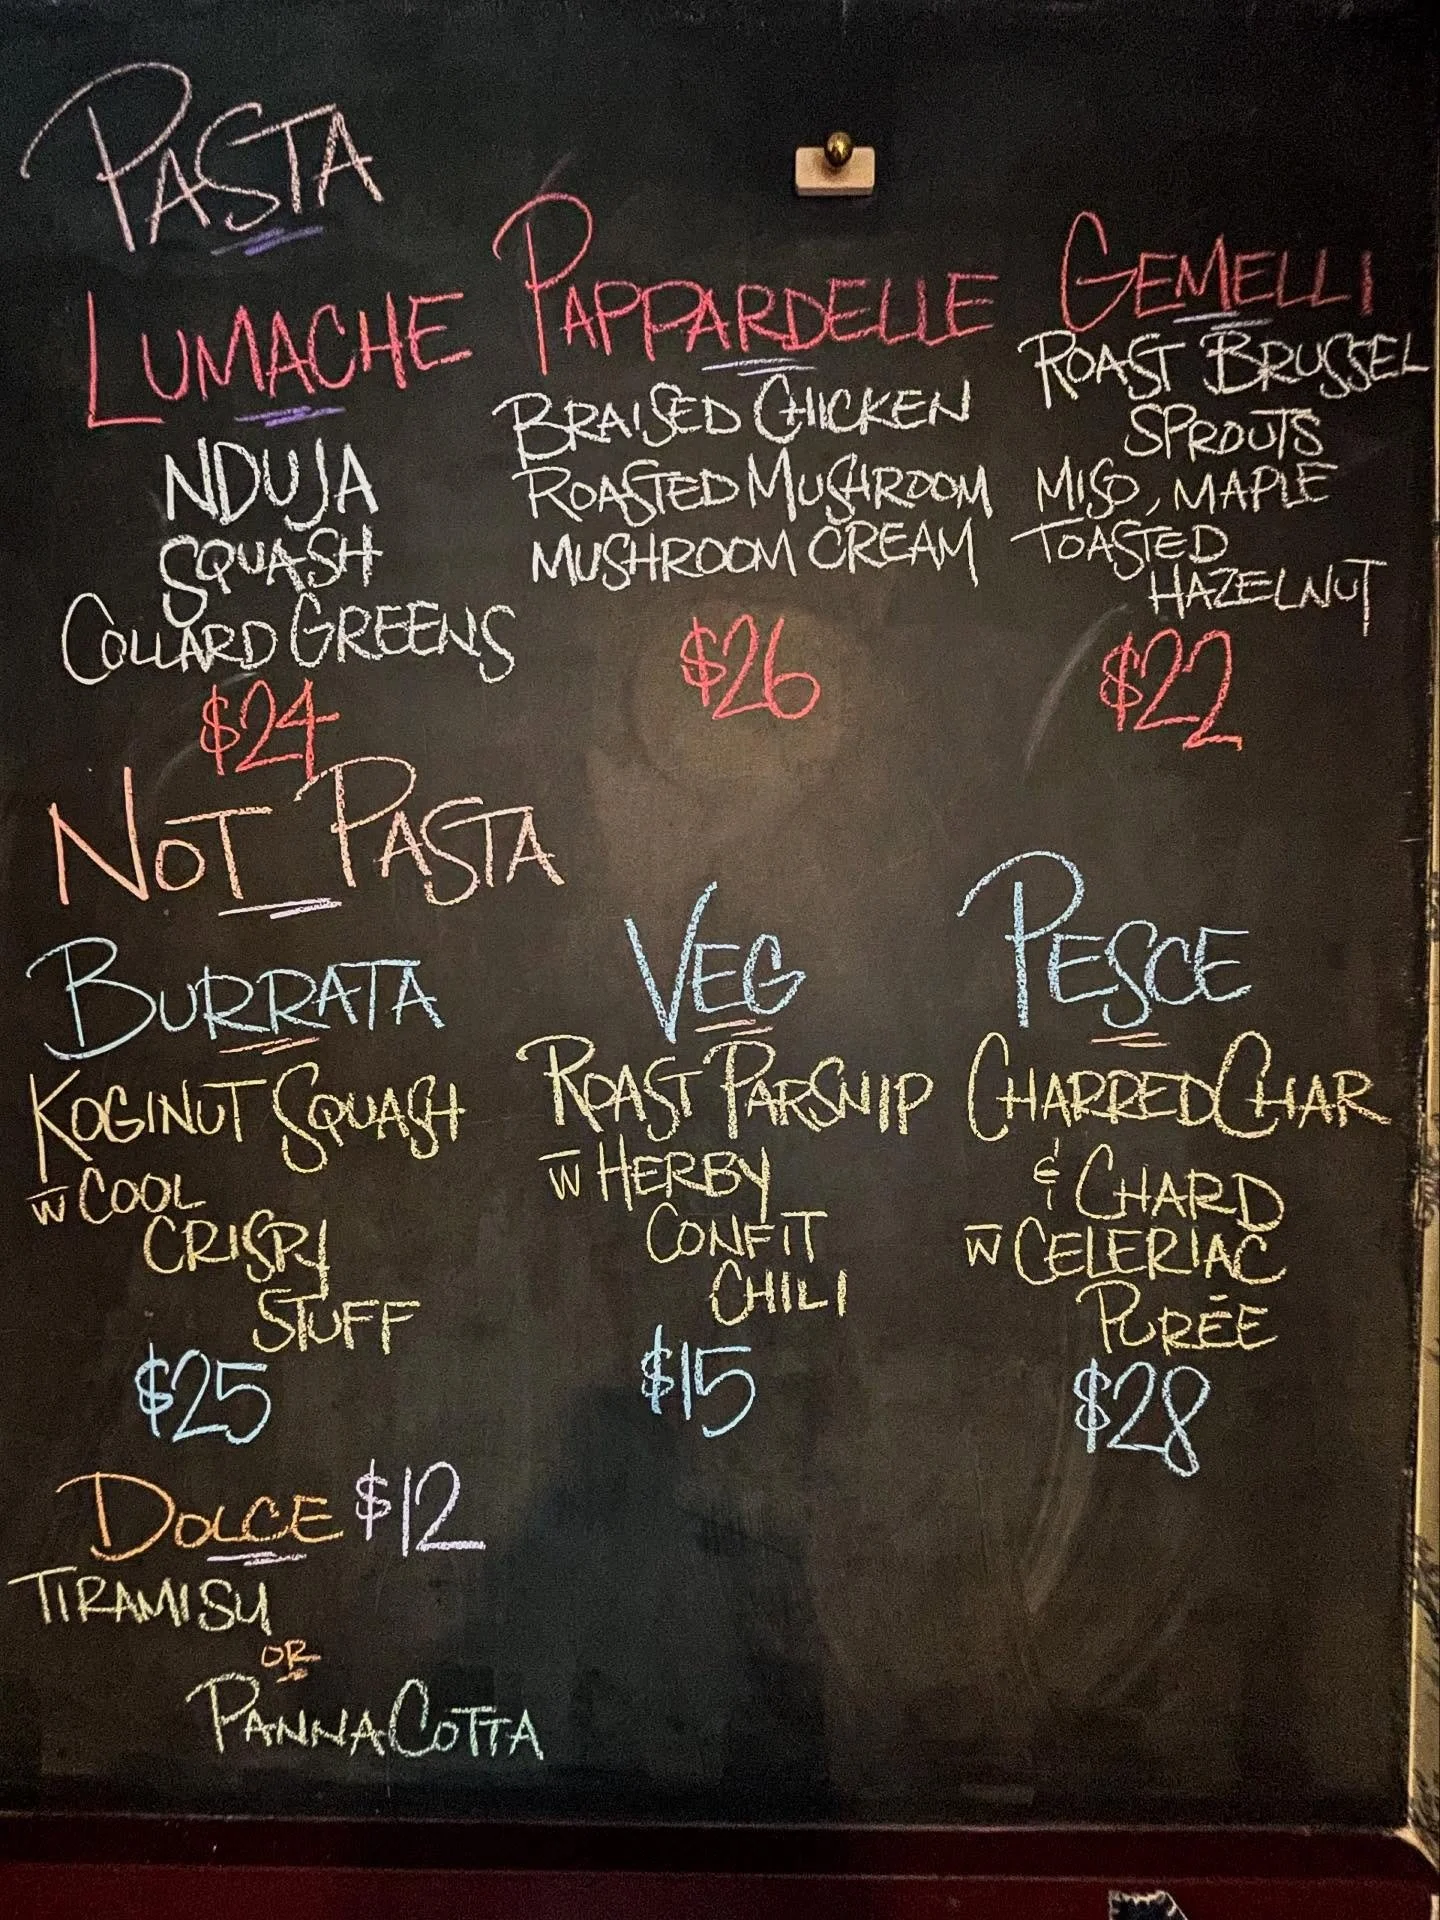 PASTA
LUMACHE
NDUJA
SQUASH
COLLARD GREENS
$24
PAPPARDELLE
BRAISED CHICKEN
ROASTED MUSHROOM
MUSHROOM CREAM
$26
GEMELLI
ROAST BRUSSEL
SPROUTS
MISO, MAPLE
TOASTED
HAZELNUT
$22
NOT PASTA
BURRATA
KOGINUT SQUASH
W COOL
CRISPY
STUFF
$25
VEG
ROAST PARSNIP
W HERBY
CONFIT
CHILI
$15
PESCE
CHARRED CHAR
& CHARD
W CELERIAC
PURÉE
$28
DOLCE $12
TIRAMISU
OR
PANNA COTTA